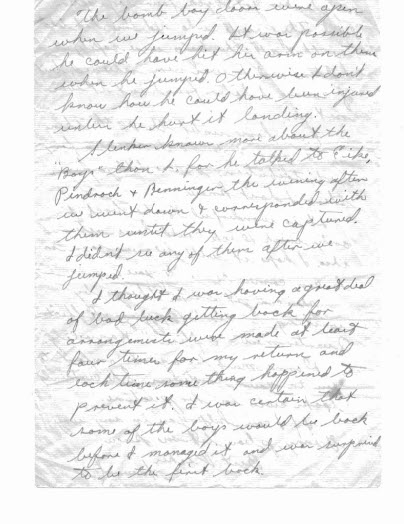 The bomb bay doors were open
when we jumped. It was possible
he could have hit his arm on them
when he jumped. Otherwise I don't
know how he could have been injured
unless he hurt it landing.
knows more about the
"Boys" than I. for he talked to Eike,
Pindroch & Benninger the evening after
we went down & corresponded with
them until they were captured.
I didn't see any of them after we
jumped.
I thought I was having a great deal
of bad luck getting back for
arrangements were made at least
four times for my return and
each time something happened to
prevent it. I was certain that
some of the boys would be back
before I managed it and was surprised
to be the first back.